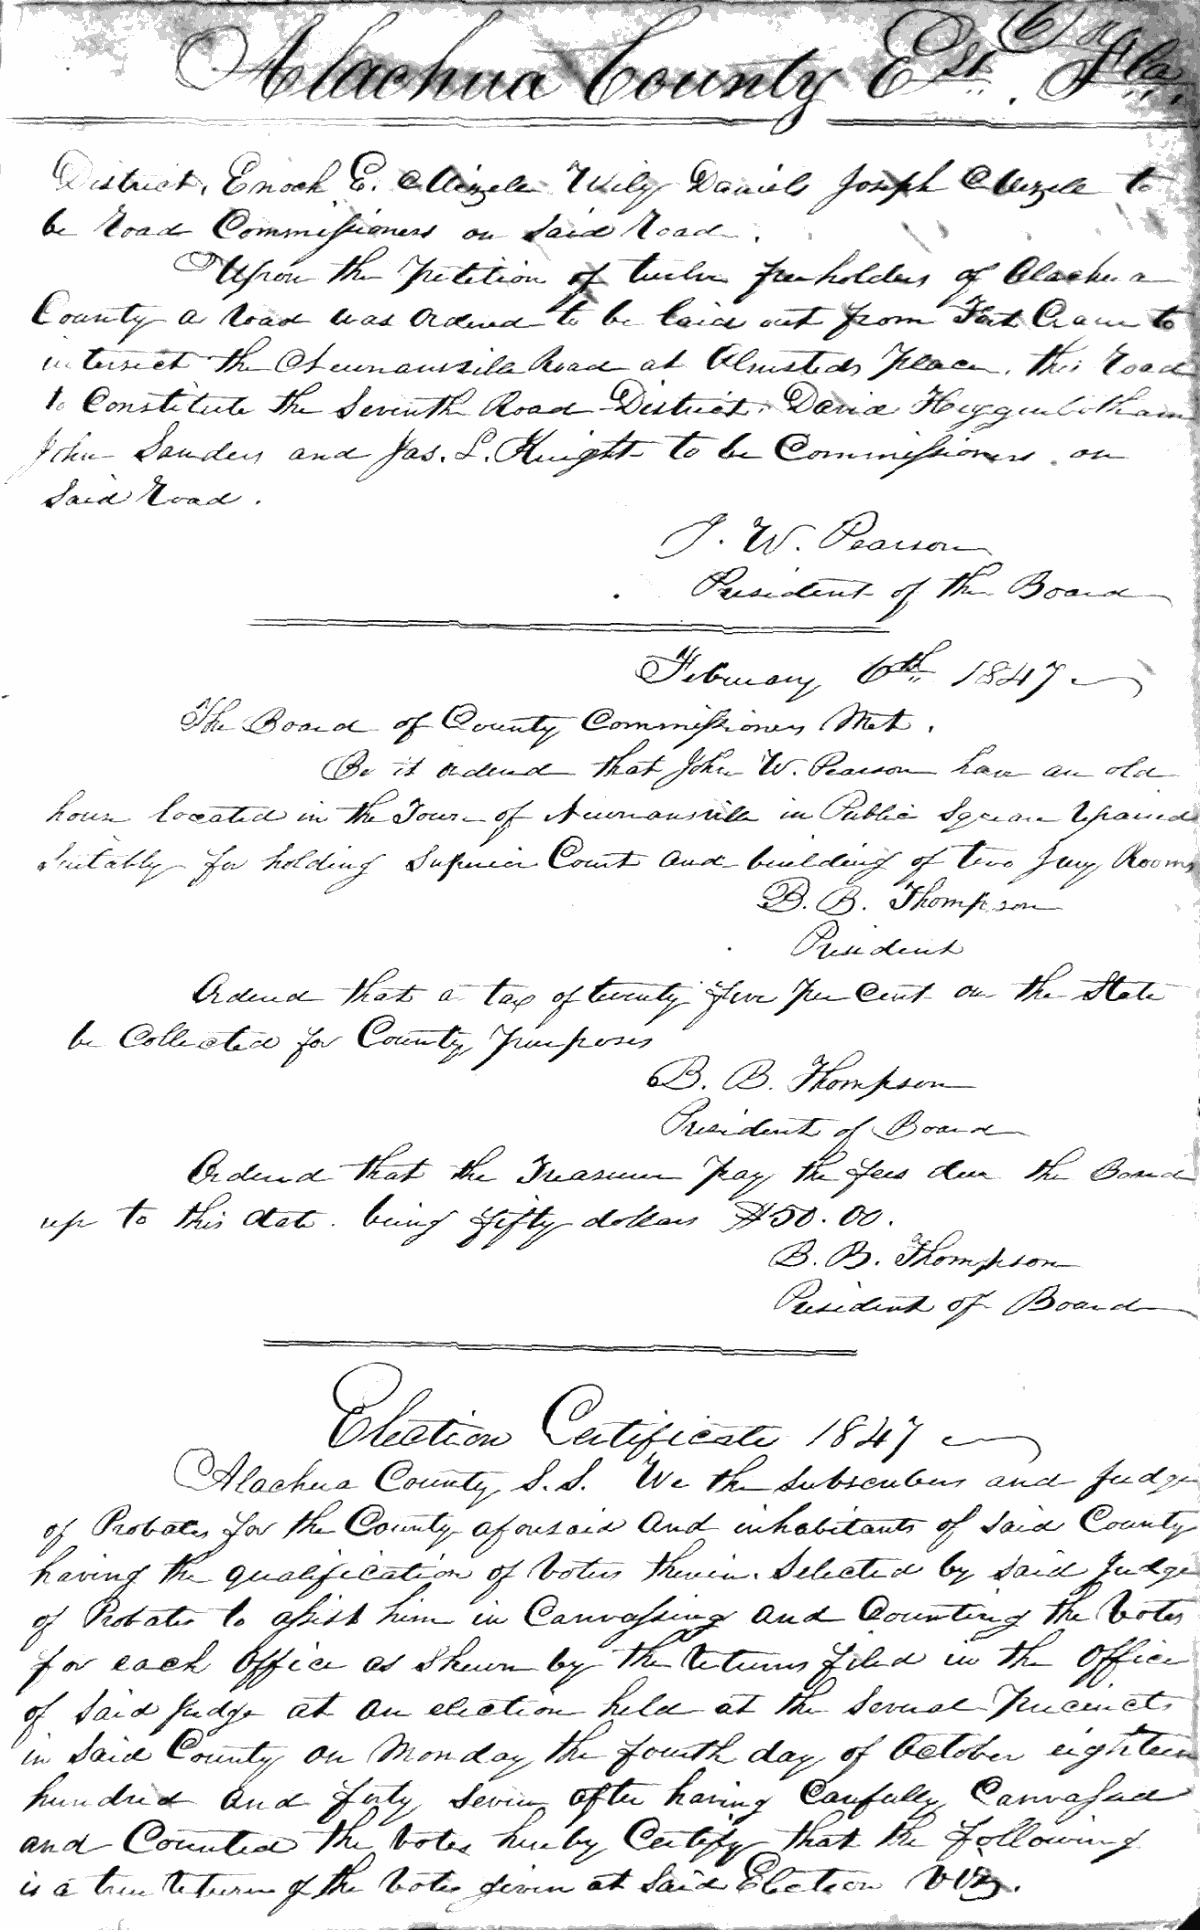 (6)
Alachua County Est. Fla.
District, Enoch E. Mizele Wily Daniels Joseph Mizele to
be Road Commissioners on said Road.
Upon the petition of twelve freeholders of Alachua
County a Road was Ordered to be laid out from Fort Crane to
intersect the Newnansville Road at Olmsteds place. this Road
to Constitute the Seventh Road District. David Higginbotham
John Sanders and Jas. L. Knight to be Commissioners on
said Road.
J. W. Pearson
President of the Board
February 6th 1847
The Board of County Commissioners Met.
Be it ordered that John W. Pearson have an old
house located in the Town of Newnansville in Public Square repaired
Suitably for holding Superior Court and building of two Jury Rooms
B. B. Thompson
President
Ordered that a tax of twenty five per Cent on the State
be Collected for County purposes
B. B. Thompson
President of Board
Ordered that the Treasurer pay the fees due the Board
up to this date. being fifty dollars $50.00.
B. B. Thompson
President of Board
Election Certificate 1847
Alachua County S.S. We the subscribers and Judge
of Probates for the County aforesaid and inhabitants of said County
having the qualification of Voters therein. Selected by said Judge
of Probates to assist him in Canvassing and Counting the Votes
for each Office as Shewn by the returns filed in the Office
of said Judge at an election held at the several precincts
in said County on Monday the fourth day of October eighteen
hundred and forty seven after having Carefully Canvassed
and Counted the Votes hereby Certify that the following
is a true return of the Votes given at said Election viz.